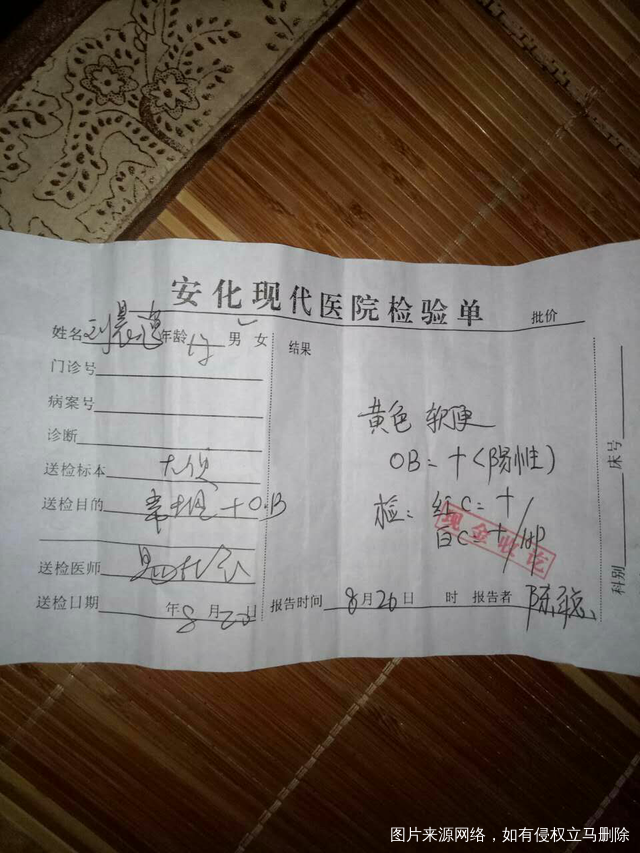 安化现代医院检验单 批价
姓名 刘晨逸 年龄 男 女
门诊号
病案号
诊断
送检标本 大便
送检目的 常规+O.B
送检医师
送检日期 年8月26日
结果
黄色 软便
OB=+(阳性)
检:红C=+/
白C=+/HP
现金收讫
报告时间 8月26日 时 报告者 陈
床号
科别
图片来源网络,如有侵权立马删除